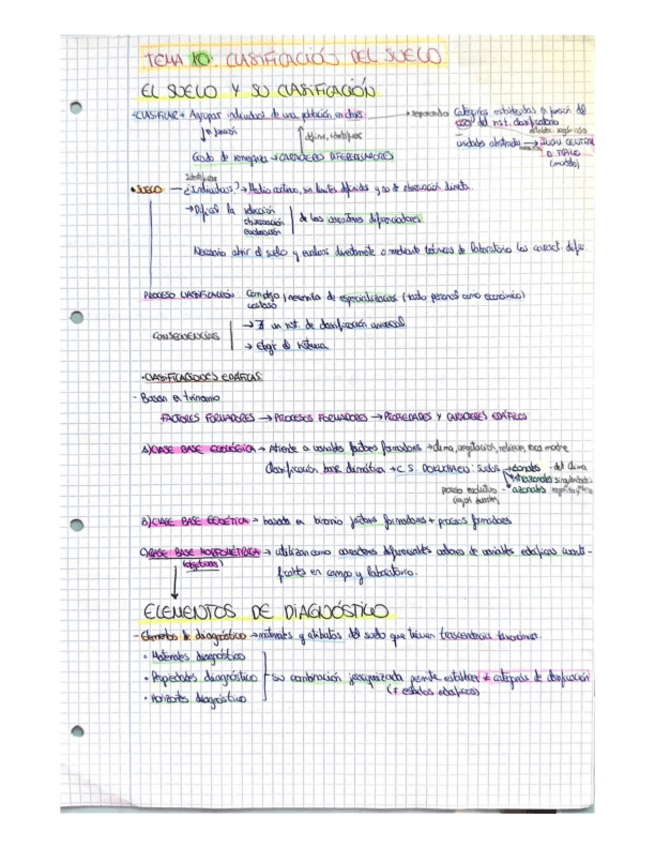 TEMA 10: CLASIFICACIÓN DEL SUELO
EL SUELO Y SU CLASIFICACIÓN
-CLASIFICAR → Agrupar individuos de una población en clases → representadas Categorías establecidas en función del
uso del sist. clasificatorio
define, identifica
unidades abstractas → INDIV. CENTRAL
O TÍPICO
(modelo)
Grado de semejanza → CARACTERES DIFERENCIADORES
Identificar
•SUELO — ¿Individuos? → Medio continuo, sin límites definidos y no de observación directa.
→ Difícil la selección
observación
evaluación
de los caracteres diferenciadores
Necesario abrir el suelo y evaluar directamente o mediante técnicas de laboratorio los caract. difer.
PROCESO CLASIFICACIÓN Complejo, necesita de especialización (tanto personal como económico)
costoso
CONSECUENCIAS
→ ∄ un sist. de clasificación universal
→ Elegir el sistema
-CLASIFICACIONES EDÁFICAS:
- Basan en trinomio
FACTORES FORMADORES → PROCESOS FORMADORES → PROPIEDADES Y CARACTERES EDÁFICOS
A) CLASE BASE ECOLÓGICA → Atiende a variables factores formadores → clima, vegetación, relieve, roca madre
Clasificación base climática → C.S. DOKUCHAEV: suelos → zonales - del clima
intrazonales
azonales
B) CLASE BASE GENÉTICA → basada en binomio factores formadores + procesos formadores
C) CLASE BASE MORFOMÉTRICA → utilizan como caracteres diferenciales valores de variables edáficas cuanti-
(objetivas)
ficables en campo y laboratorio.
ELEMENTOS DE DIAGNÓSTICO
- Elementos de diagnóstico → materiales y atributos del suelo que tienen trascendencia taxonómica.
• Materiales diagnóstico
• Propiedades diagnóstico — su combinación jerarquizada permite establecer ≠ categorías de clasificación
(≠ estados edáficos)
• Horizontes diagnóstico